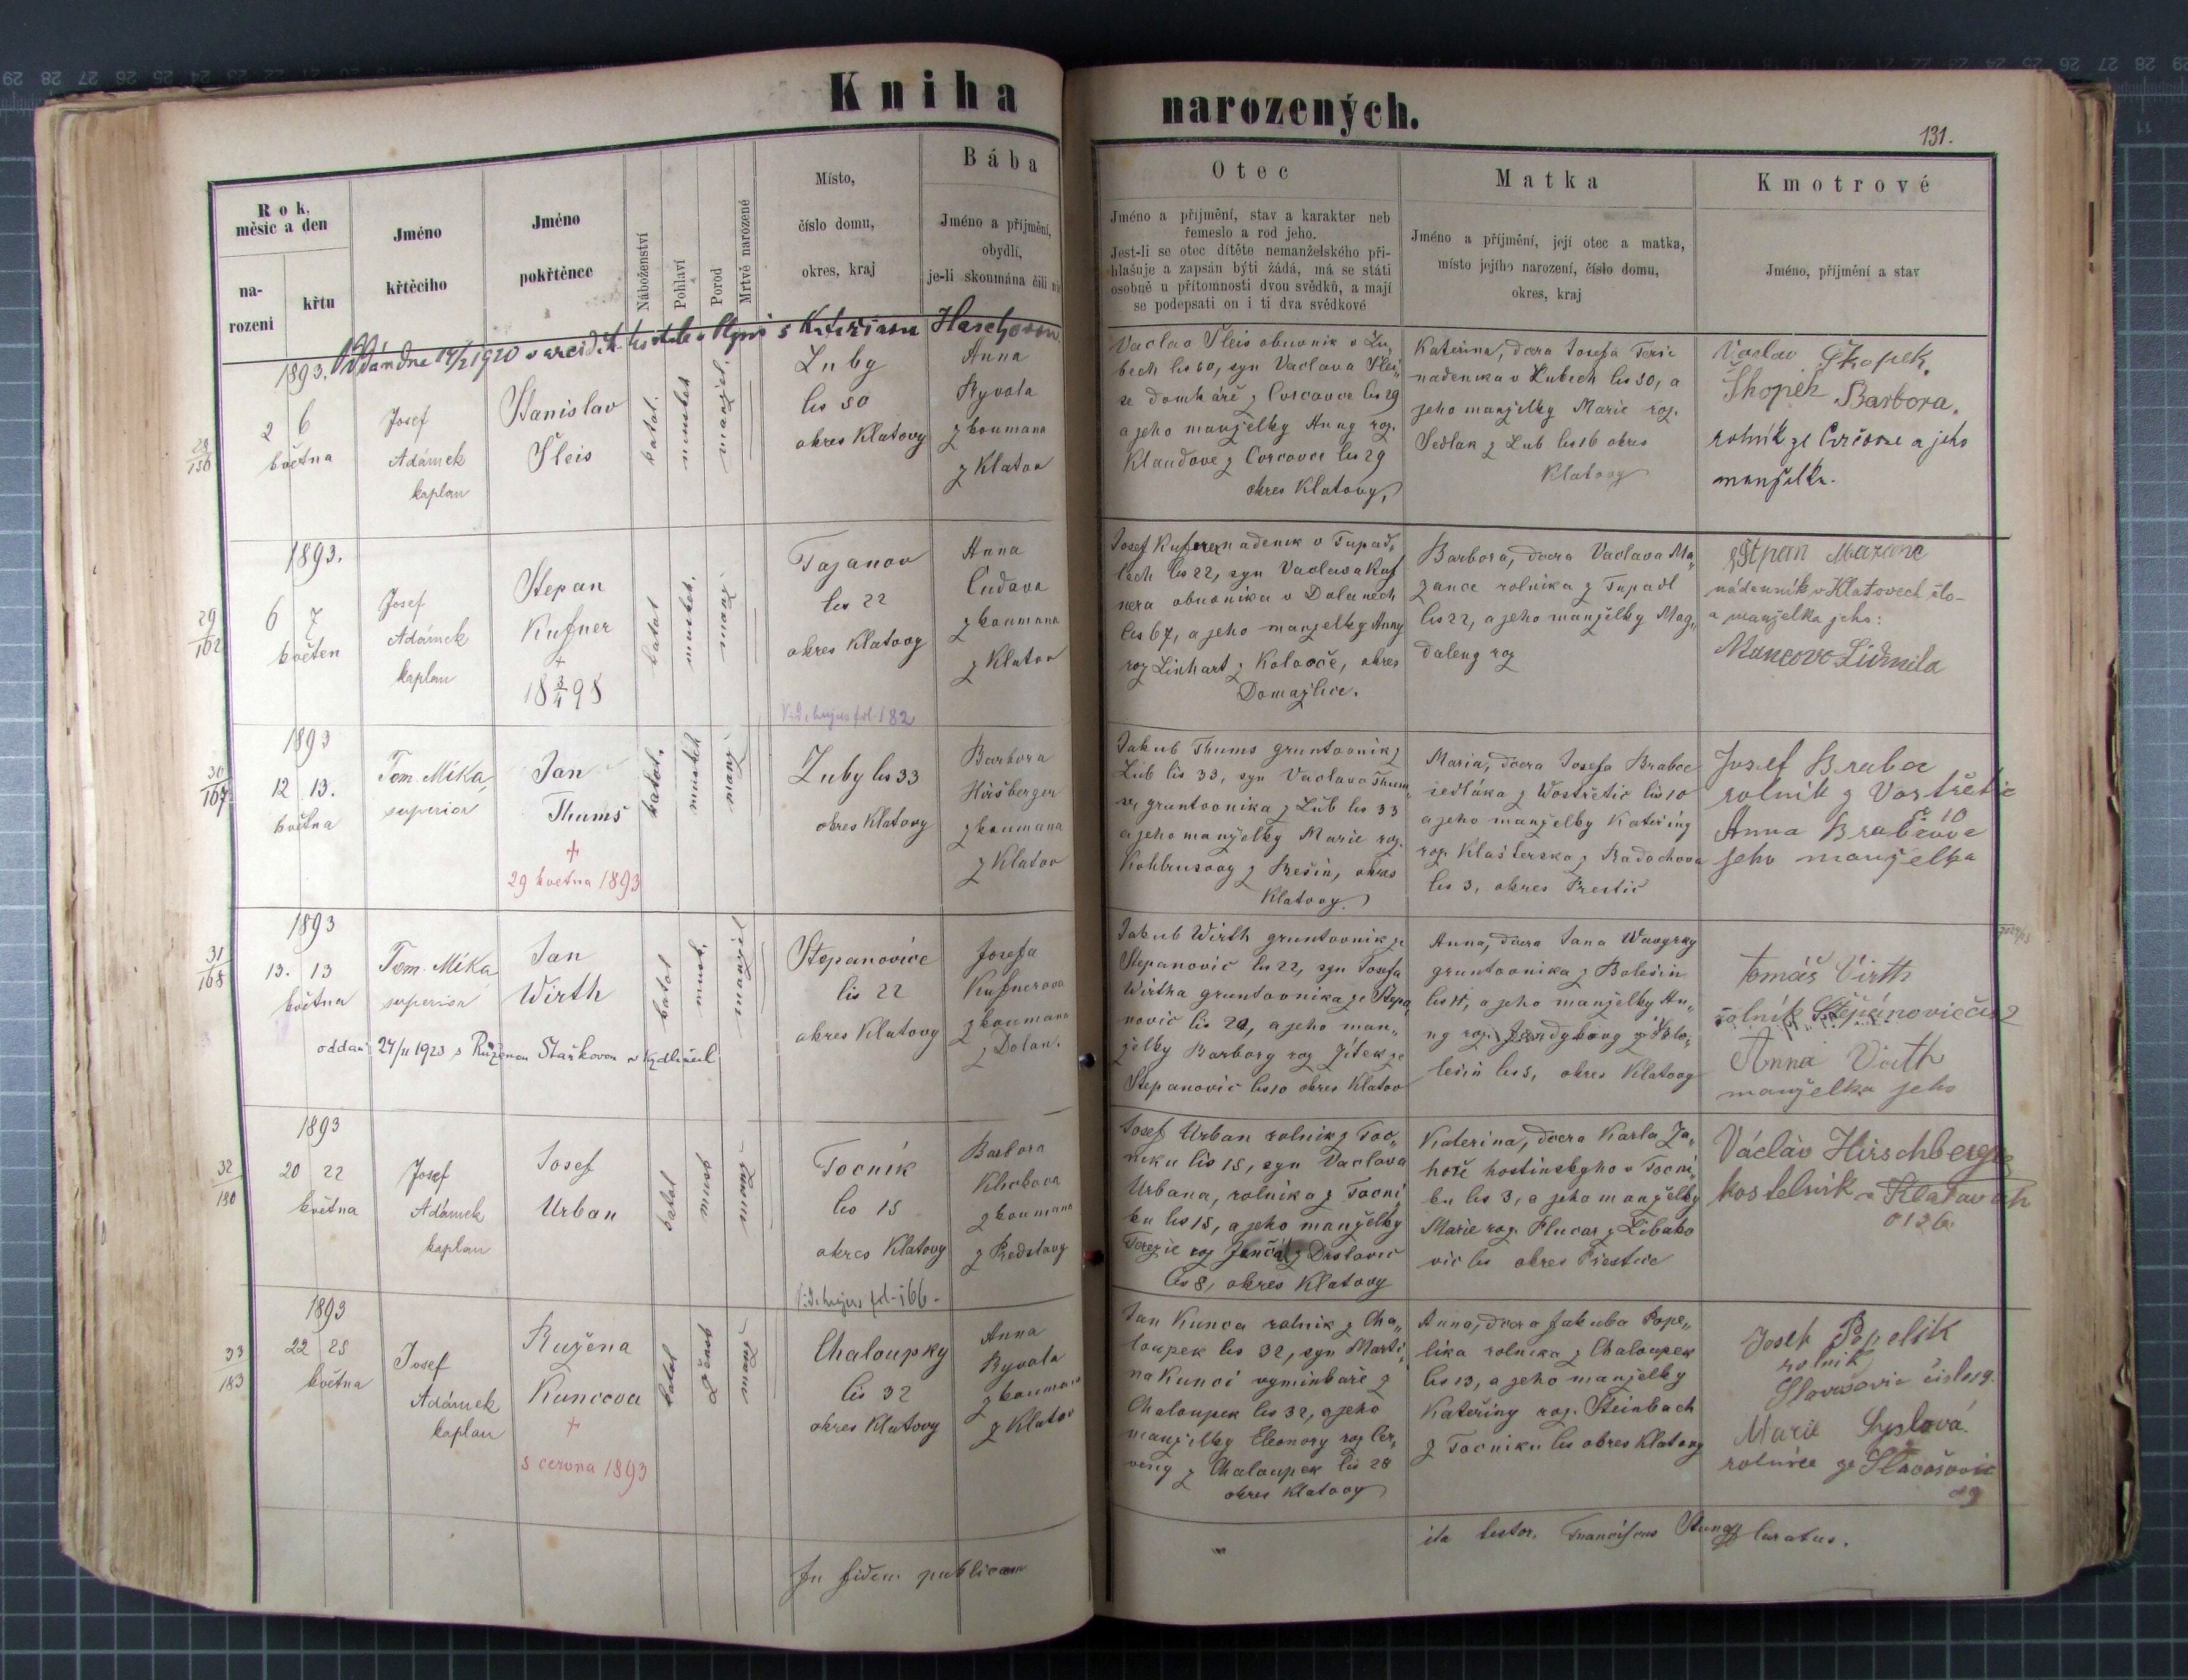 Kniha
narozených.
131.
Rok,
měsíc a den
na-
rozeni
křtu
Jméno
křtěcího
Jméno
pokřtěnce
Náboženství
Pohlaví
Porod
Mrtvě narozené
Místo,
číslo domu,
okres, kraj
Bába
Jméno a příjmění,
obydlí,
je-li skoumána čili
Otec
Jméno a přijmění, stav a karakter neb
řemeslo a rod jeho.
Jest-li se otec dítěte nemanželského při-
hlašuje a zapsán býti žádá, má se státi
osobně u přítomnosti dvou svědků, a mají
se podepsati on i ti dva svědkové
Matka
Jméno a příjmění, její otec a matka,
místo jejího narození, číslo domu,
okres, kraj
Kmotrové
Jméno, přijmění a stav
1893.
28
156
2 6
května
Josef
Adámek
kaplan
Stanislav
Šleis
katol.
mužské
manžel.
Luby
čís 50
okres Klatovy
Anna
Ryvola
zkoumana
z Klatov
Vaclav Šleis obuvnik v Lu-
bech čis 60, syn Vaclava Šlei-
se domkáře z čis 29
a jeho manželky Anny roz.
čis 29
okres Klatovy,
Kateřina, dcera Josefa
nadenika v Lubech čis 50, a
jeho manželky Marie roz.
Sedlak z Lub čis 16 okres
Klatovy
Vaclav Škopek,
Škopek Barbora.
rolník ze a jeho
manželka.
1893.
29
162
6 7
květen
Josef
Adámek
kaplan
Stepan
Kufner
+
18 3/4 98
katol
mužské.
manž.
Tajanov
čis 22
okres Klatovy
Vid. hujus fol. 182
Anna
Cudova
zkoumana
z Klatov
Josef Kufner nadenik v Tupad-
lech čis 22, syn Vaclava Kuf
nera obuvnika v Dolanech
čis 67, a jeho manželky Anny
roz Linhart z Koloveče, okres
Domažlice.
Barbora, dcera Vaclava Ma-
zance rolnika z Tupadl
čis 22, a jeho manželky Mag-
daleny roz
Štpan Mazanc
nádenník v Klatovech
a manželka jeho:
Ludmila
1893
30
167
12 13.
května
Tom. Mika
superior
Jan
Thums
+
29 května 1893
katol.
mužské
manž.
Luby čis 33
okres Klatovy
Barbora
Hiršberger
zkoumana
z Klatov
Jakub Thums gruntovnik z
Lub čis 33, syn Vaclava Thum-
se, gruntovnika z Lub čis 33
a jeho manželky Marie roz.
z Bešin, okres
Klatovy.
Maria, dcera Josefa Brabce
sedláka z Wostřetic čis 10
a jeho manželky Kateřiny
roz. Klašterska z Radochova
čis 3, okres Prestic
Josef Brabec
rolník z Vostřetic
č 10
Anna Brabcova
jeho manželka
1893
31
168
13. 13
května
Tom. Mika
superior
Jan
Wirth
katol
muž.
manžel
Stepanovice
čis 22
okres Klatovy
Josefa
Kufnerova
zkoumana
z Dolan.
oddan 24/11 1923 s Růženou Staňkovou
Jakub Wirth gruntovnik ze
Stepanovic čis 22, syn Josefa
Wirtha gruntovnika ze Stepa-
novic čis 22, a jeho man-
želky Barbory roz Jitek ze
Stepanovic čis 10 okres Klatov
Anna, dcera Jana
gruntovnika z Bolešin
čis 11, a jeho manželky An-
ny roz. z Bo-
lešin čis 5, okres Klatovy
Tomáš Virth
rolník Štěpánovice
Anna Virth
manželka jeho
1893
32
180
20 22
května
Josef
Adámek
kaplan
Josef
Urban
katol
muž
manž.
Točník
čis 15
okres Klatovy
Vid. hujus fol. 166.
Barbora
zkoumana
z Předslavy
Josef Urban rolnik z Toč-
niku čis 15, syn Vaclava
Urbana, rolnika z Točni
ku čis 15, a jeho manželky
Terezie roz Jenčál z Drslavic
čis 8, okres Klatovy
Kateřina, dcera Karla Za-
hoře hostinskyho v Točni-
ku čis 3, a jeho manželky
Marie roz. z Libako
vic čis okres Přestice
Václáv Hirschberger
kostelník v Klatovách
1893
33
183
22 25
května
Josef
Adámek
kaplan
Ružena
Kuncova
+
5 cervna 1893
katol
ženské
manž.
Chaloupky
čis 32
okres Klatovy
Anna
Ryvola
zkoumana
z Klatov
Jan Kunca rolnik z Cha-
loupek čis 32, syn Marti-
na Kunci vyminkaře z
Chaloupek čis 32, a jeho
manželky Eleonory roz Čer-
veny z Chaloupek čis 28
okres Klatovy
Anna, dcera Jakuba Pope-
lika rolnika z Chaloupek
čis 13, a jeho manželky
Kateřiny roz. Steinbach
z Točniku čis okres Klatovy
Josef Popelik
rolnik
Slavošovic čislo 19.
Marie
rolnice ze Slavošovic
In fidem publicam
ita testor. Franciscus curatus.